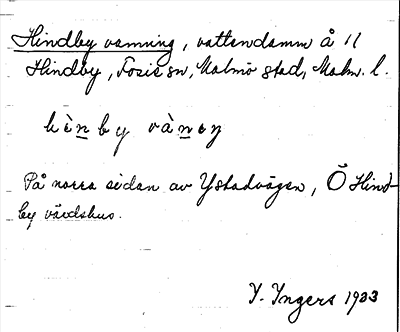 Hindby vanning, vattendamm å 11
Hindby, Fosie sn, Malmö stad, Malm. l.
hìnby vàneŋ
På norra sidan av Ystadvägen, Ö Hind-
by värdshus.
I. Ingers 1933